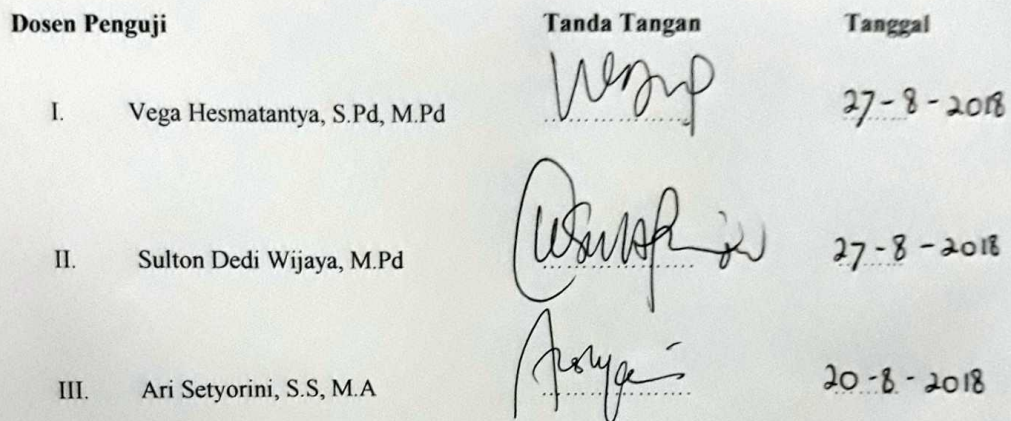 Dosen Penguji Tanda Tangan Tanggal
I. Vega Hesmatantya, S.Pd, M.Pd 27-8-2018
II. Sulton Dedi Wijaya, M.Pd 27-8-2018
III. Ari Setyorini, S.S, M.A 20-8-2018